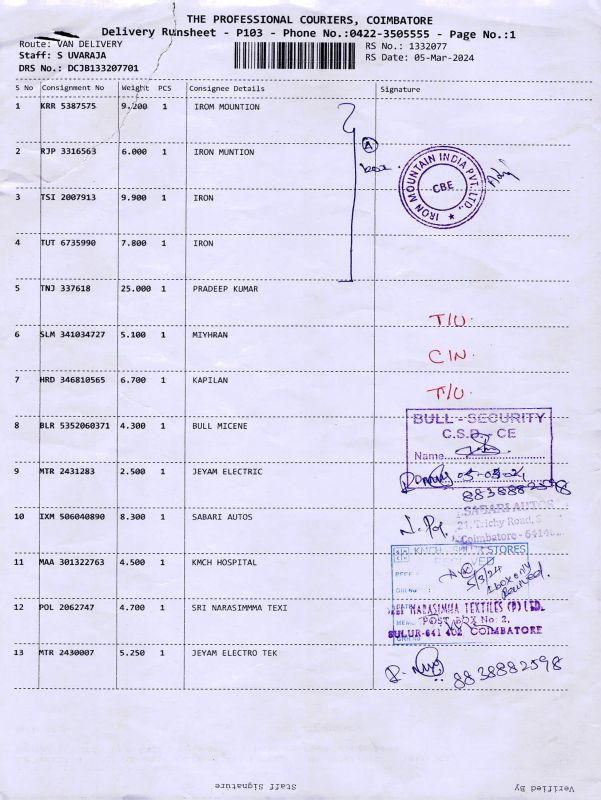 THE PROFESSIONAL COURIERS, COIMBATORE
Delivery Runsheet - P103 - Phone No.:0422-3505555 - Page No.:1
Route: VAN DELIVERY
RS No.: 1332077
Staff: S UVARAJA
RS Date: 05-Mar-2024
DRS No.: DCJB133207701
S No Consignment No Weight PCS Consignee Details Signature
1 KRR 5387575 9.200 1 IROM MOUNTION
2 RJP 3316563 6.000 1 IRON MUNTION
A
box
IRON MOUNTAIN INDIA PVT. LTD.,
CBE
3 TSI 2007913 9.900 1 IRON
4 TUT 6735990 7.800 1 IRON
5 TNJ 337618 25.000 1 PRADEEP KUMAR
T/U.
6 SLM 341034727 5.100 1 MIYHRAN
C/N.
7 HRD 346810565 6.700 1 KAPILAN
T/U.
8 BLR 5352060371 4.300 1 BULL MICENE
BULL - SECURITY
Name
9 MTR 2431283 2.500 1 JEYAM ELECTRIC
8838882598
10 IXM 506040890 8.300 1 SABARI AUTOS
SABARI AUTOS
21, Trichy Road,
Coimbatore -
11 MAA 301322763 4.500 1 KMCH HOSPITAL
KMCH STORES
5/3/24
1 box only
Received.
12 POL 2062747 4.700 1 SRI NARASIMMMA TEXI
NARASIMMA TEXTILES (P) LTD.
POST BOX No. 2,
SULUR-641 402 COIMBATORE
13 MTR 2430007 5.250 1 JEYAM ELECTRO TEK
8838882598
Staff Signature
Verified By